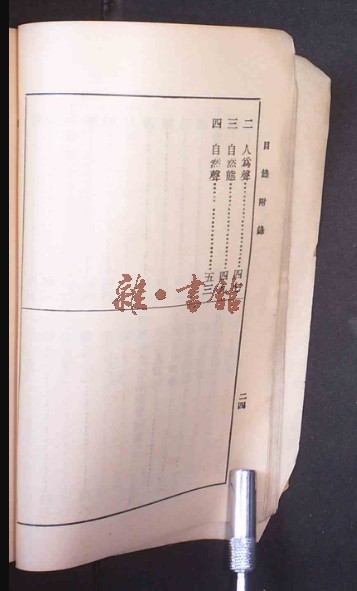 目錄附錄
二 人爲聲
三 自然態
四 自然聲
二四
雜·書館